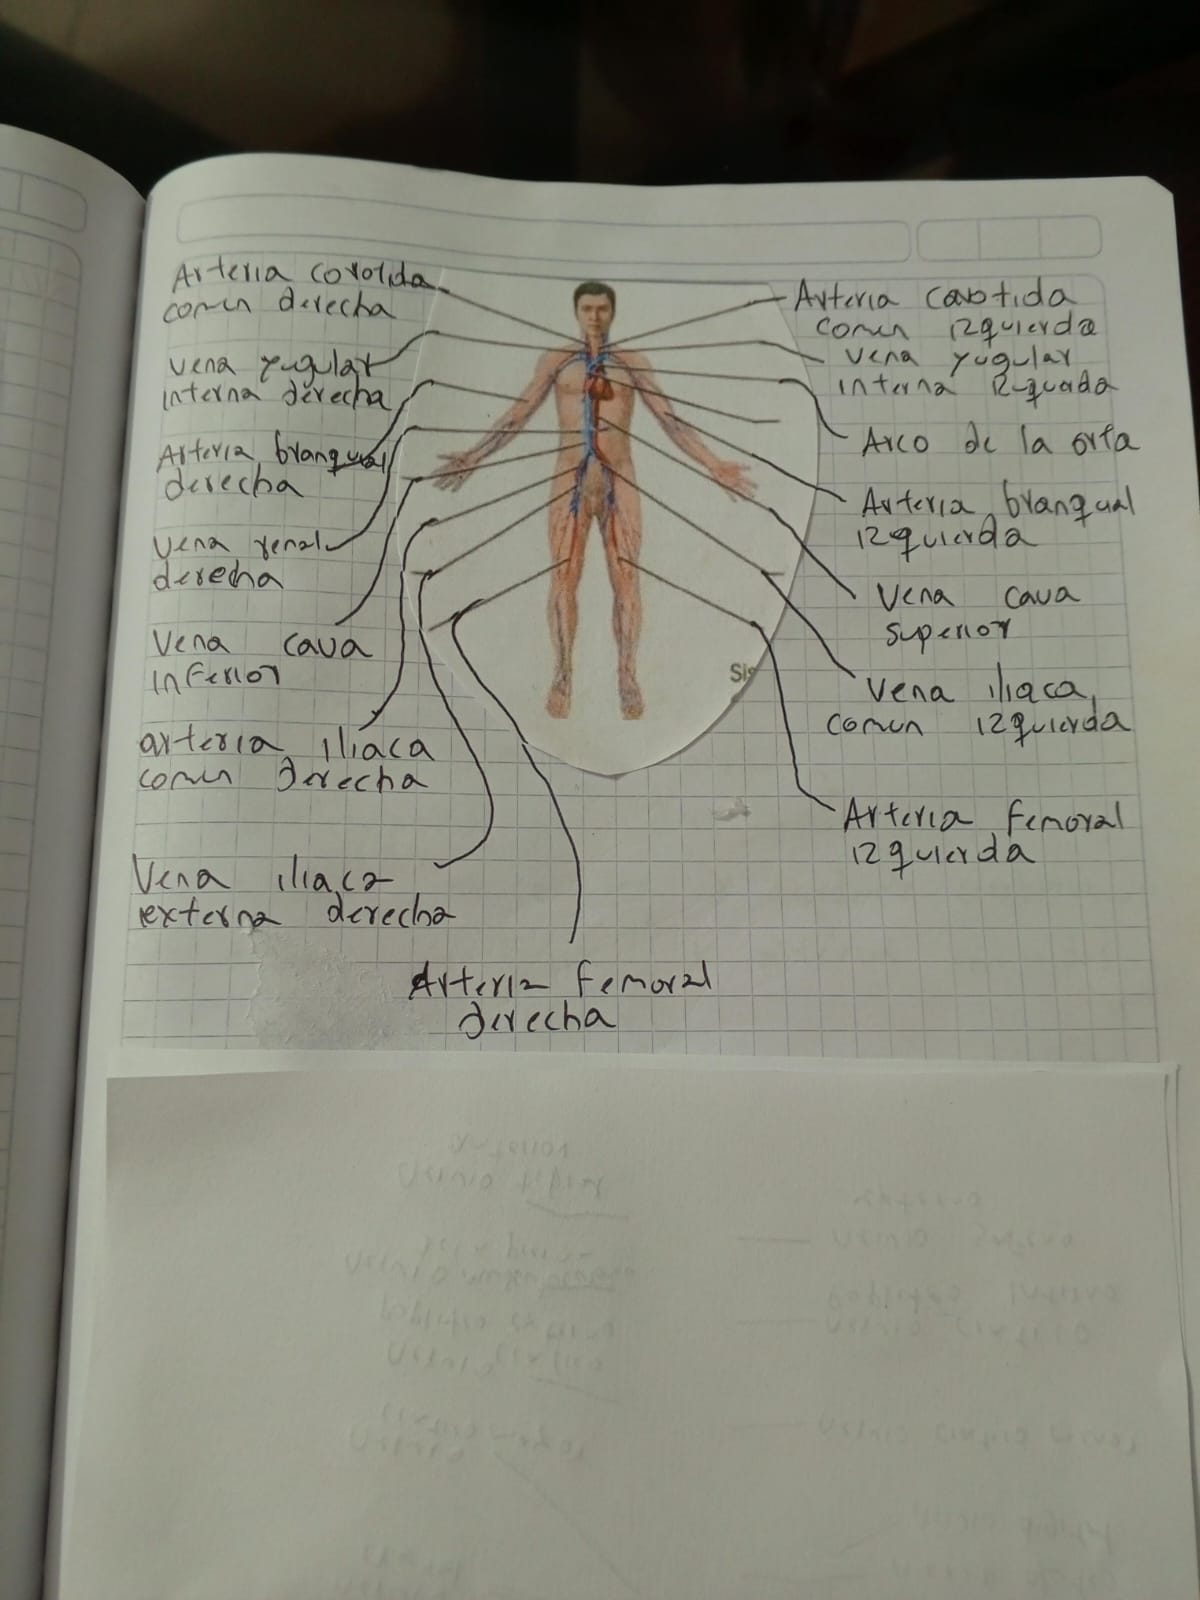 Arteria corotida
comun derecha
vena yugular
interna derecha
Arteria branqual
derecha
vena renal
derecha
Vena cava
inferior
arteria iliaca
comun derecha
Vena iliaca
externa derecha
Arteria femoral
derecha
Arteria carotida
comun izquierda
vena yugular
interna
Arco de la orta
Arteria branqual
izquierda
Vena cava
superior
Vena iliaca
comun izquierda
Arteria femoral
izquierda
Sis